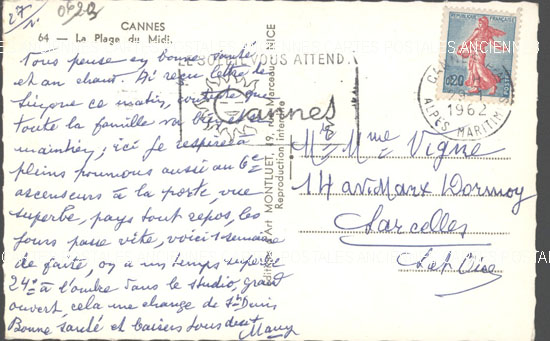 27 N
0629
CANNES
64 — La Plage du Midi.
SOLEIL VOUS ATTEND
Cannes
REPUBLIQUE FRANÇAISE
0,20
1962
ALPES MARITIM
S ANCIENNES
Vous pense en bonne santé
et au chaud. Ai reçu lettre de
Suzone ce matin, contente que
toute la famille va bien
maintien; ici je respire à
pleins poumons aussi au 6e
ascenseurs à la porte, vue
superbe, pays tout repos, les
jours passe vite, voici 1 semaine
de faite, on a un temps superbe
24° à l'ombre dans le studio, grand
ouvert, cela me change de St Denis
Bonne santé et baisers tous deux
Many
Editions d'Art MONTLUET, 19, rue Marceau, NICE
Reproduction interdite
M. Mme Vigne
14 av. Marx Dormoy
Sarcelles
S et Oise